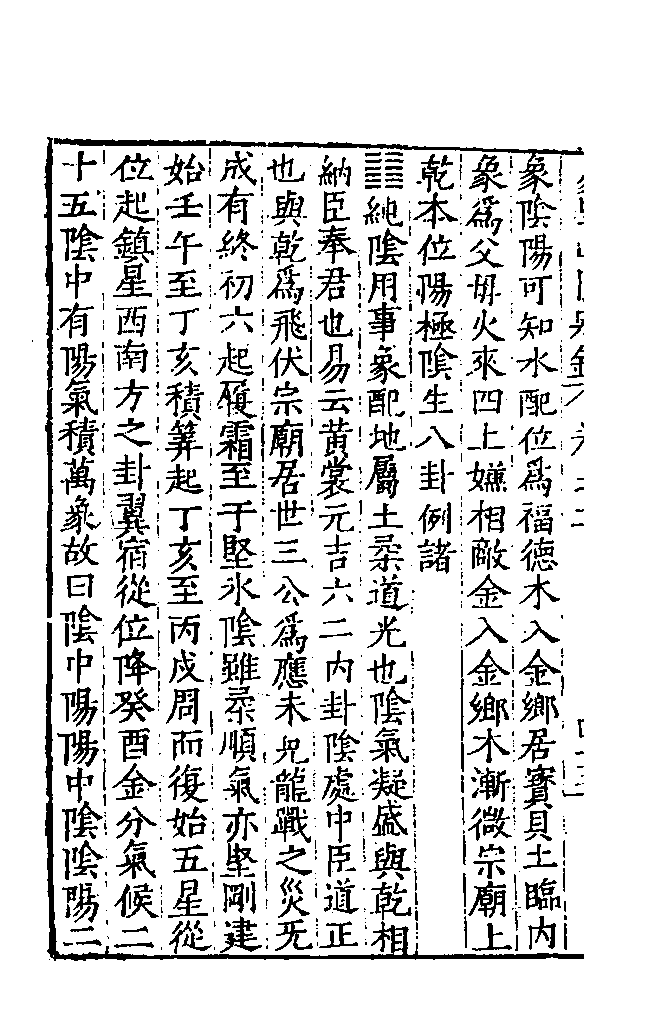 象陰陽可知水配位爲福德木入金鄉居寳貝土臨内
象爲父母火來四上嫌相敵金入金鄉木漸微宗廟上
乾本位陽極陰生八卦例諸
䷁純陰用事象配地屬土柔道光也陰氣凝盛與乾相
納臣奉君也易云黄裳元吉六二内卦陰處中臣道正
也與乾爲飛伏宗廟居世三公爲應未免龍戰之災无
成有終初六起履霜至于堅氷陰雖柔順氣亦堅剛建
始壬午至丁亥積筭起丁亥至丙戍周而復始五星從
位起鎮星西南方之卦翼宿從位降癸酉金分氣候二
十五陰中有陽氣積萬象故曰陰中陽陽中陰陰陽二